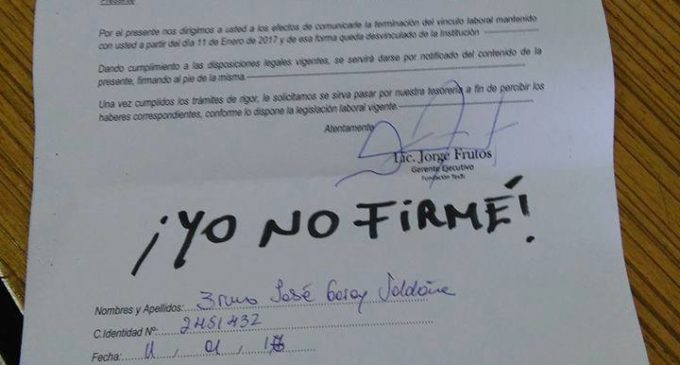 Por el presente nos dirigimos a usted a los efectos de comunicarle la terminación del vínculo laboral mantenido
con usted a partir del día 11 de Enero de 2017 y de esa forma queda desvinculado de la Institución
Dando cumplimiento a las disposiciones legales vigentes, se servirá darse por notificado del contenido de la
presente, firmando al pie de la misma.
Una vez cumplidos los trámites de rigor, le solicitamos se sirva pasar por nuestra tesorería a fin de percibir los
haberes correspondientes, conforme lo dispone la legislación laboral vigente.
Atentamente
Lic. Jorge Frutos
Gerente Ejecutivo
Fundación Tesãi
¡YO NO FiRMÉ!
Nombres y Apellidos: Bruno José Garay
C.Identidad Nº 2451432
Fecha: 11 , 01 ,